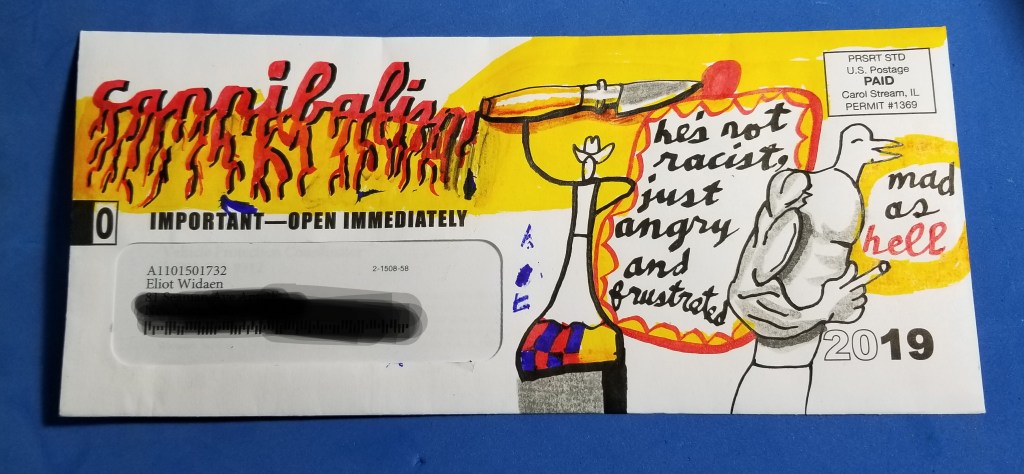 cannibalism
PRSRT STD
U.S. Postage
PAID
Carol Stream, IL
PERMIT #1369
he's not
racist,
just
angry
and
frustrated
mad
as
hell
0
IMPORTANT—OPEN IMMEDIATELY
A1101501732
2-1508-58
Eliot Widaen
2019